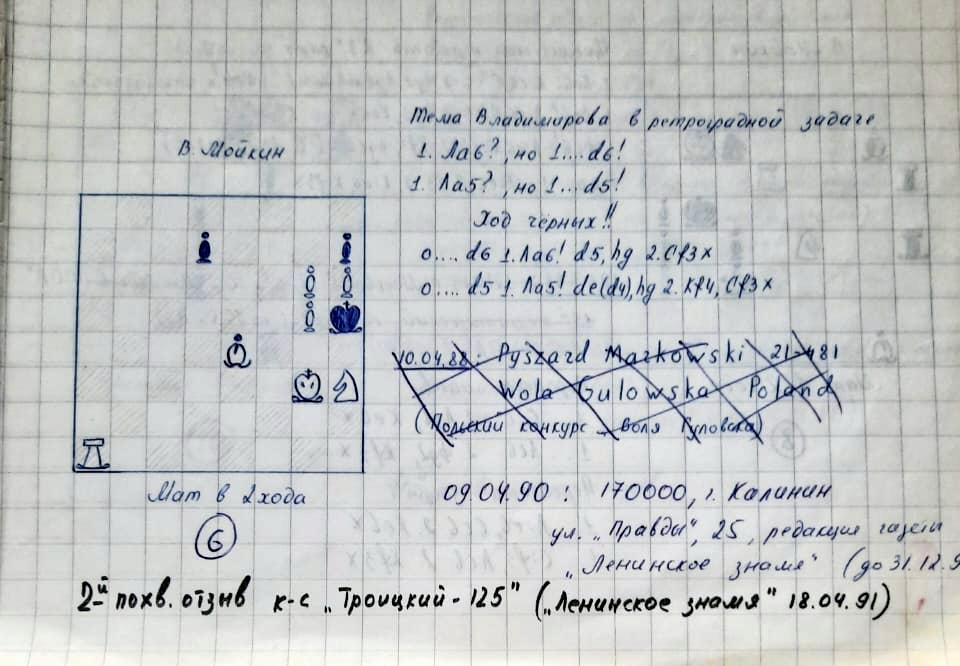 В. Мойкин
Тема Владимирова в ретроградной задаче
1. Ла6?, но 1... d6!
1. Ла5?, но 1... d5!
Ход чёрных!!
0.... d6 1. Ла6! d5, hg 2. Сf3x
0.... d5 1. Ла5! de(d4), hg 2. Кf4, Сf3x
10.04.88: Ryszard Markowski 21-481
Wola Gulowska Poland
(Польский конкурс Воля Гуловска)
Мат в 2 хода
6
09.04.90: 170000, г. Калинин
ул. „Правды", 25, редакция газеты
„Ленинское знамя" (до 31.12.9
2-й похв. отзыв к-с „Троицкий - 125" („Ленинское знамя" 18.04.91)